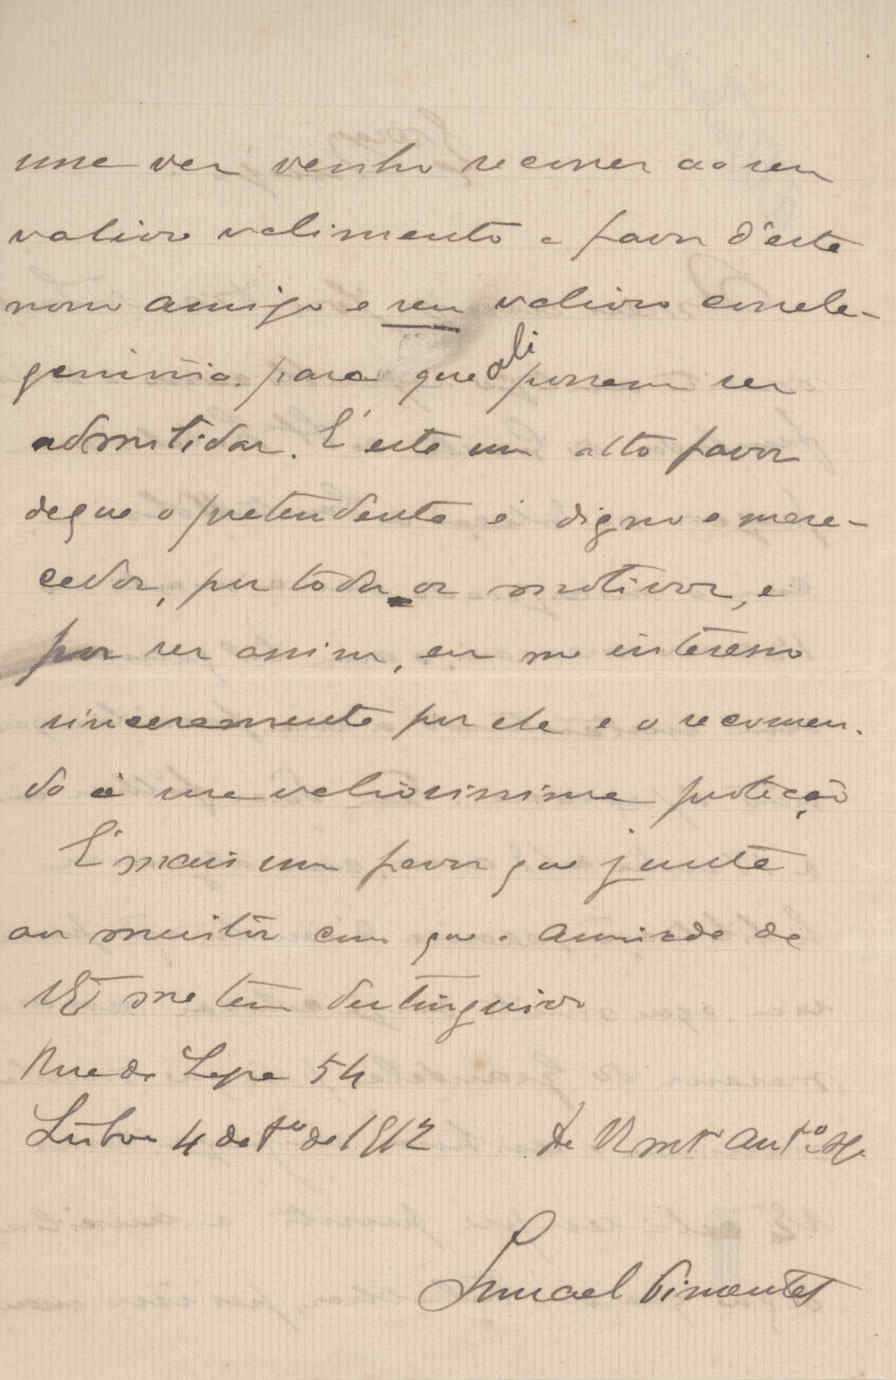 uma vez venho recorrer ao seu
valioso valimento a favor d'este
nosso amigo e seu valioso correle-
gionario. para que ali possam ser
admitidos. E' este um alto favor
de que o pretendente é digno e mere-
cedor, por todos os motivos, e
por ser assim, eu me interesso
sinceramente por ele e o recomen-
do á sua valiosissima proteção
E' mais um favor que junta
aos muitos com que a amisade de
VEª me tem destinguido
Rua da Lapa 54
Lisboa 4 de de 1912 De V
Ismael Pimentel